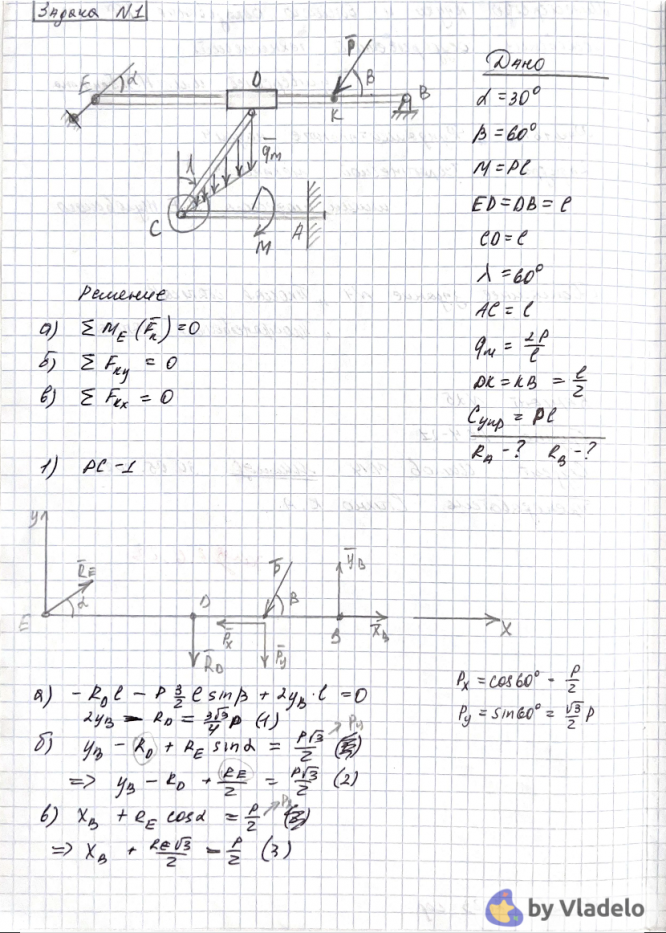 Задача N1
E
α
D
P̄
β
K
B
λ
q̄m
C
M
A
Дано
α = 30°
β = 60°
M = Pl
ED = DB = l
CD = l
λ = 60°
AC = l
qm = 2P/l
DK = KB = l/2
Cупр = Pl
RA - ? RB - ?
Решение
а) Σ ME (F̄k) = 0
б) Σ Fky = 0
в) Σ Fkx = 0
1) РС - 1
y
R̄E
α
E
D
R̄D
P̄
β
P̄x
P̄y
ȲB
B
X̄B
X
Px = cos60° - P/2
Py = sin60° = √3/2 P
а) - RD l - P 3/2 l sin β + 2yB · l = 0
2yB - RD = 3√3/4 P (1)
б) yB - RD + RE sin α = P√3/2 Py
=> yB - RD + RE/2 = P√3/2 (2)
в) XB + RE cos α = P/2
=> XB + RE√3/2 = P/2 (3)
by Vladelo